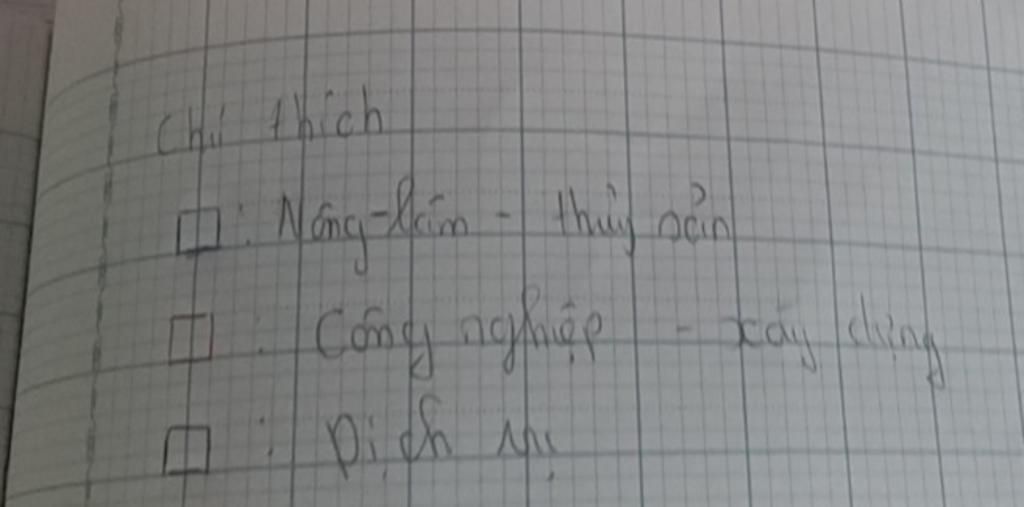 Chú thích
□: Nông-lâm - thủy sản
□: Công nghiệp - xây dựng
□: Dịch vụ